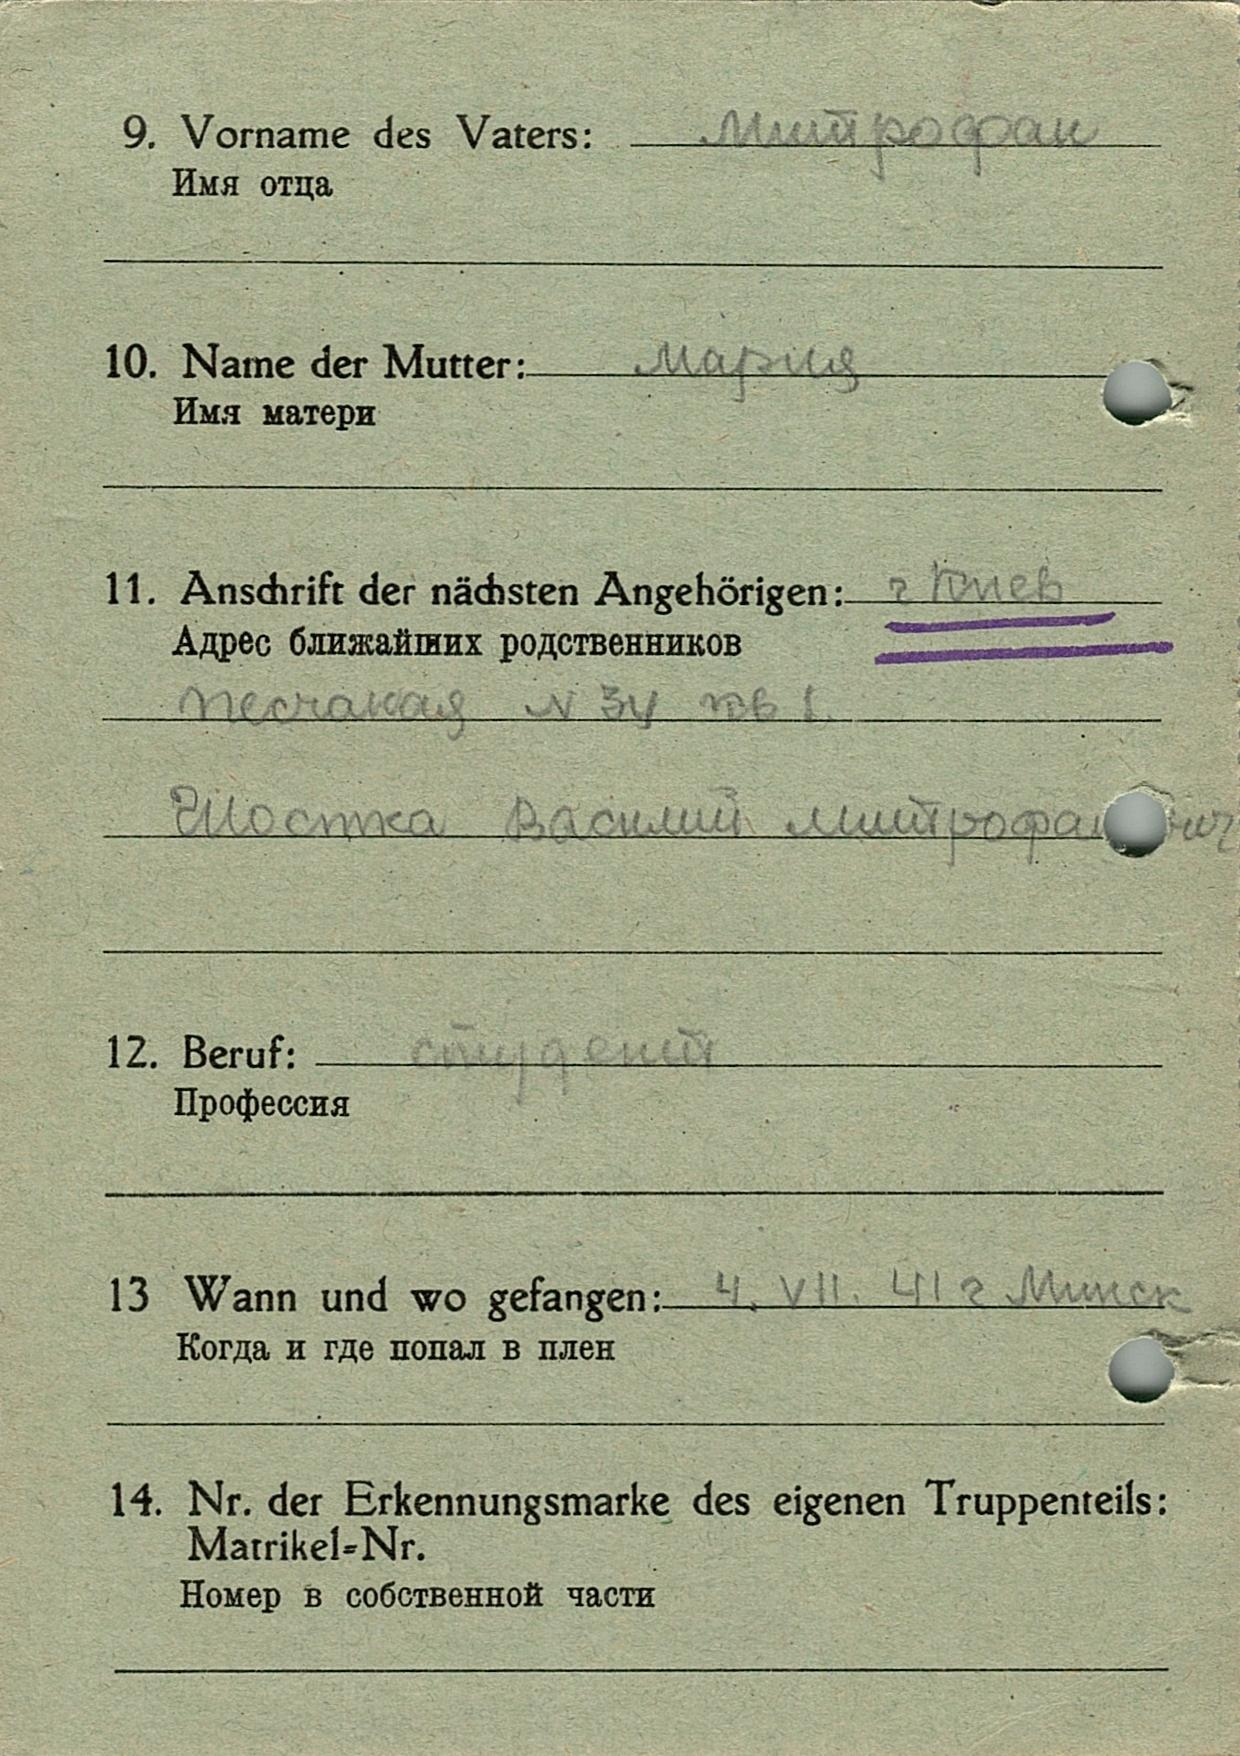 9. Vorname des Vaters: Митрофан
Имя отца
10. Name der Mutter: Мария
Имя матери
11. Anschrift der nächsten Angehörigen: г Киев
Адрес ближайших родственников
Песчаная N 34 кв 1.
Шостка Василий Митрофанович
12. Beruf: студент
Профессия
13 Wann und wo gefangen: 4. VII. 41 г Минск
Когда и где попал в плен
14. Nr. der Erkennungsmarke des eigenen Truppenteils:
Matrikel=Nr.
Номер в собственной части